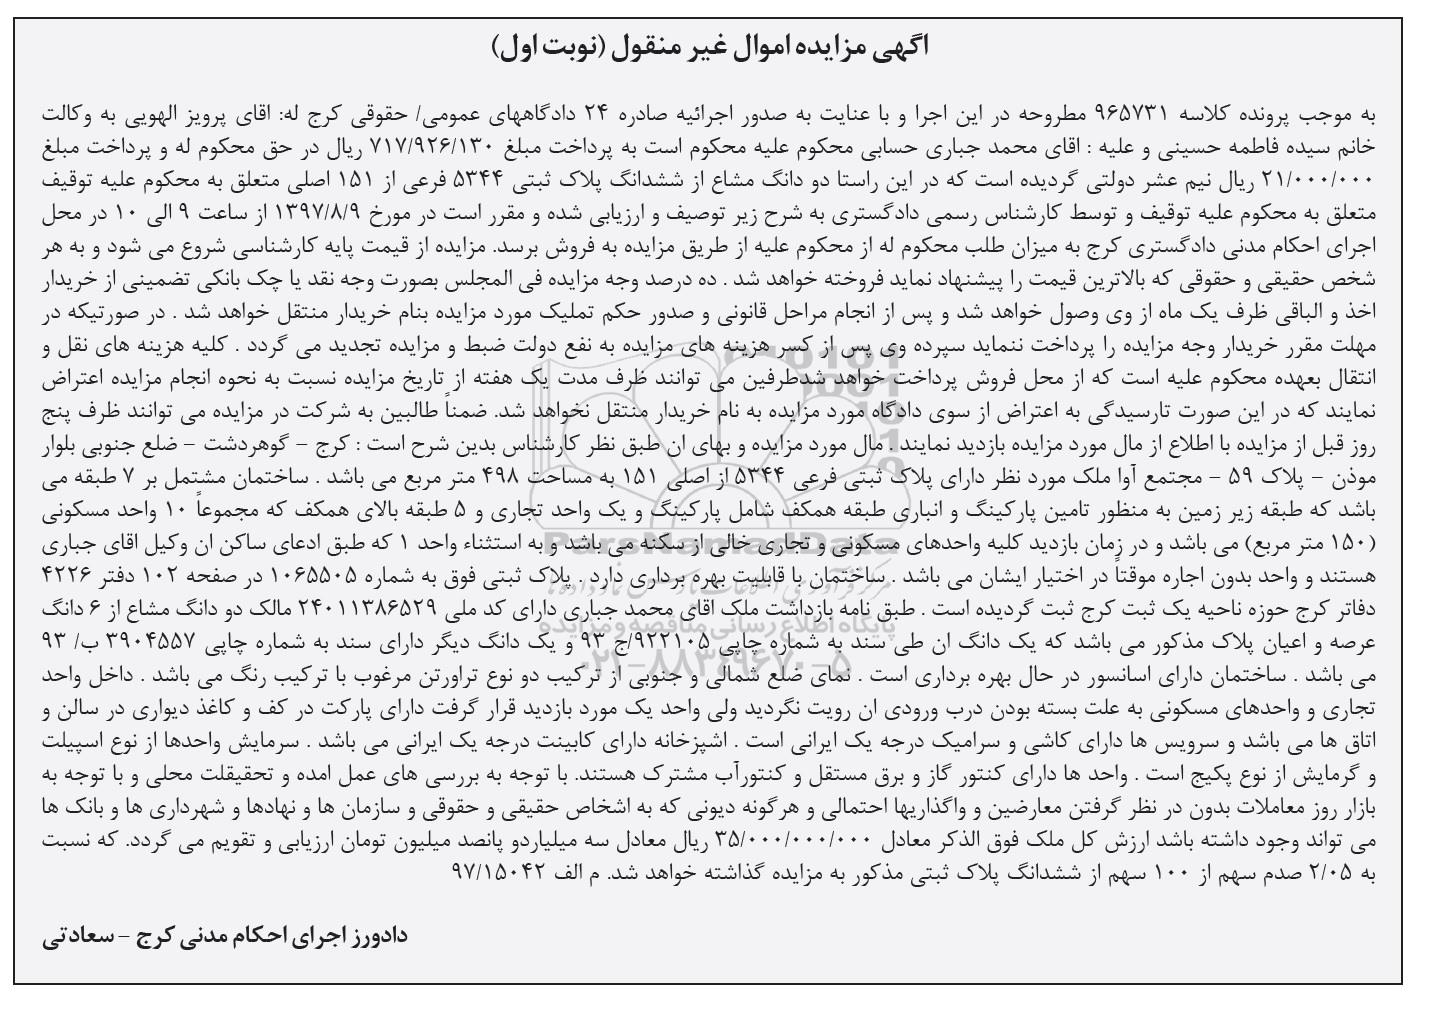 اگهی مزایده اموال غیر منقول (نوبت اول)
به موجب پرونده کلاسه ۹۶۵۷۳۱ مطروحه در این اجرا و با عنایت به صدور اجرائیه صادره ۲۴ دادگاههای عمومی/ حقوقی کرج له: اقای پرویز الهویی به وکالت
خانم سیده فاطمه حسینی و علیه : اقای محمد جباری حسابی محکوم علیه محکوم است به پرداخت مبلغ ۷۱۷/۹۲۶/۱۳۰ ریال در حق محکوم له و پرداخت مبلغ
۲۱/۰۰۰/۰۰۰ ریال نیم عشر دولتی گردیده است که در این راستا دو دانگ مشاع از ششدانگ پلاک ثبتی ۵۳۴۴ فرعی از ۱۵۱ اصلی متعلق به محکوم علیه توقیف
متعلق به محکوم علیه توقیف و توسط کارشناس رسمی دادگستری به شرح زیر توصیف و ارزیابی شده و مقرر است در مورخ ۱۳۹۷/۸/۹ از ساعت ۹ الی ۱۰ در محل
اجرای احکام مدنی دادگستری کرج به میزان طلب محکوم له از محکوم علیه از طریق مزایده به فروش برسد. مزایده از قیمت پایه کارشناسی شروع می شود و به هر
شخص حقیقی و حقوقی که بالاترین قیمت را پیشنهاد نماید فروخته خواهد شد . ده درصد وجه مزایده فی المجلس بصورت وجه نقد یا چک بانکی تضمینی از خریدار
اخذ و الباقی ظرف یک ماه از وی وصول خواهد شد و پس از انجام مراحل قانونی و صدور حکم تملیک مورد مزایده بنام خریدار منتقل خواهد شد . در صورتیکه در
مهلت مقرر خریدار وجه مزایده را پرداخت ننماید سپرده وی پس از کسر هزینه های مزایده به نفع دولت ضبط و مزایده تجدید می گردد . کلیه هزینه های نقل و
انتقال بعهده محکوم علیه است که از محل فروش پرداخت خواهد شدطرفین می توانند ظرف مدت یک هفته از تاریخ مزایده نسبت به نحوه انجام مزایده اعتراض
نمایند که در این صورت تارسیدگی به اعتراض از سوی دادگاه مورد مزایده به نام خریدار منتقل نخواهد شد. ضمناً طالبین به شرکت در مزایده می توانند ظرف پنج
روز قبل از مزایده با اطلاع از مال مورد مزایده بازدید نمایند . مال مورد مزایده و بهای ان طبق نظر کارشناس بدین شرح است : کرج – گوهردشت – ضلع جنوبی بلوار
موذن – پلاک ۵۹ – مجتمع آوا ملک مورد نظر دارای پلاک ثبتی فرعی ۵۳۴۴ از اصلی ۱۵۱ به مساحت ۴۹۸ متر مربع می باشد . ساختمان مشتمل بر ۷ طبقه می
باشد که طبقه زیر زمین به منظور تامین پارکینگ و انباری طبقه همکف شامل پارکینگ و یک واحد تجاری و ۵ طبقه بالای همکف که مجموعاً ۱۰ واحد مسکونی
(۱۵۰ متر مربع) می باشد و در زمان بازدید کلیه واحدهای مسکونی و تجاری خالی از سکنه می باشد و به استثناء واحد ۱ که طبق ادعای ساکن ان وکیل اقای جباری
هستند و واحد بدون اجاره موقتاً در اختیار ایشان می باشد . ساختمان با قابلیت بهره برداری دارد . پلاک ثبتی فوق به شماره ۱۰۶۵۵۰۵ در صفحه ۱۰۲ دفتر ۴۲۲۶
دفاتر کرج حوزه ناحیه یک ثبت کرج ثبت گردیده است . طبق نامه بازداشت ملک اقای محمد جباری دارای کد ملی ۲۴۰۱۱۳۸۶۵۲۹ مالک دو دانگ مشاع از ۶ دانگ
عرصه و اعیان پلاک مذکور می باشد که یک دانگ ان طی سند به شماره چاپی ۹۲۲۱۰۵/ج ۹۳ و یک دانگ دیگر دارای سند به شماره چاپی ۳۹۰۴۵۵۷ ب/ ۹۳
می باشد . ساختمان دارای اسانسور در حال بهره برداری است . نمای ضلع شمالی و جنوبی از ترکیب دو نوع تراورتن مرغوب با ترکیب رنگ می باشد . داخل واحد
تجاری و واحدهای مسکونی به علت بسته بودن درب ورودی ان رویت نگردید ولی واحد یک مورد بازدید قرار گرفت دارای پارکت در کف و کاغذ دیواری در سالن و
اتاق ها می باشد و سرویس ها دارای کاشی و سرامیک درجه یک ایرانی است . اشپزخانه دارای کابینت درجه یک ایرانی می باشد . سرمایش واحدها از نوع اسپیلت
و گرمایش از نوع پکیج است . واحد ها دارای کنتور گاز و برق مستقل و کنتورآب مشترک هستند. با توجه به بررسی های عمل امده و تحقیقلت محلی و با توجه به
بازار روز معاملات بدون در نظر گرفتن معارضین و واگذاریها احتمالی و هرگونه دیونی که به اشخاص حقیقی و حقوقی و سازمان ها و نهادها و شهرداری ها و بانک ها
می تواند وجود داشته باشد ارزش کل ملک فوق الذکر معادل ۳۵/۰۰۰/۰۰۰/۰۰۰ ریال معادل سه میلیاردو پانصد میلیون تومان ارزیابی و تقویم می گردد. که نسبت
به ۲/۰۵ صدم سهم از ۱۰۰ سهم از ششدانگ پلاک ثبتی مذکور به مزایده گذاشته خواهد شد. م الف ۹۷/۱۵۰۴۲
دادورز اجرای احکام مدنی کرج – سعادتی
ParsNamadData
پایگاه اطلاع رسانی مناقصه و مزایده
۰۲۱-۸۸۳۴۹۶۷۰-۵